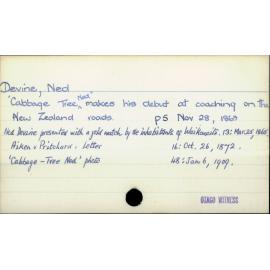 Devine, Ned
"Cabbage Tree Ned" makes his debut at coaching on the
New Zealand roads. p5 Nov 28, 1863
Ned Devine presented with a gold watch by the inhabitants of Waikouaiti. 13: Mar. 25, 1865
Aiken v Pritchard: letter 16: Oct. 26, 1872.
'Cabbage-Tree Ned' photo 48: Jan 6, 1909.
OTAGO WITNESS